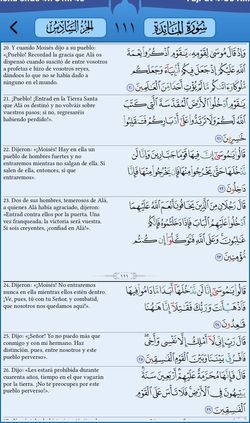 سُورَةُ المَائِدَة
١١١
الجُزْءُ السَّادِسُ
20. Y cuando Moisés dijo a su pueblo:
«¡Pueblo! Recordad la gracia que Alá os
dispensó cuando suscitó de entre vosotros
a profetas e hizo de vosotros reyes,
dándoos lo que no se había dado a
ninguno en el mundo.
وَإِذْ قَالَ مُوسَىٰ لِقَوْمِهِۦ يَٰقَوْمِ ٱذْكُرُوا۟ نِعْمَةَ
ٱللَّهِ عَلَيْكُمْ إِذْ جَعَلَ فِيكُمْ أَنۢبِيَآءَ وَجَعَلَكُم
مُّلُوكًا وَءَاتَىٰكُم مَّا لَمْ يُؤْتِ أَحَدًا مِّنَ ٱلْعَٰلَمِينَ ٢٠
21. ¡Pueblo! ¡Entrad en la Tierra Santa
que Alá os destinó y no volváis sobre
vuestros pasos; si no, regresaréis
habiendo perdido!».
يَٰقَوْمِ ٱدْخُلُوا۟ ٱلْأَرْضَ ٱلْمُقَدَّسَةَ ٱلَّتِى كَتَبَ
ٱللَّهُ لَكُمْ وَلَا تَرْتَدُّوا۟ عَلَىٰٓ أَدْبَارِكُمْ فَتَنقَلِبُوا۟
خَٰسِرِينَ ٢١
22. Dijeron: «¡Moisés! Hay en ella un
pueblo de hombres fuertes y no
entraremos mientras no salgan de ella. Si
salen de ella, entonces, sí que
entraremos».
قَالُوا۟ يَٰمُوسَىٰٓ إِنَّ فِيهَا قَوْمًا جَبَّارِينَ وَإِنَّا لَن
نَّدْخُلَهَا حَتَّىٰ يَخْرُجُوا۟ مِنْهَا فَإِن يَخْرُجُوا۟ مِنْهَا فَإِنَّا
دَٰخِلُونَ ٢٢
23. Dos de sus hombres, temerosos de Alá,
a quienes Alá había agraciado, dijeron:
«Entrad contra ellos por la puerta. Una
vez franqueada, la victoria será vuestra.
Si sois creyentes, ¡confiad en Alá!».
قَالَ رَجُلَانِ مِنَ ٱلَّذِينَ يَخَافُونَ أَنْعَمَ ٱللَّهُ عَلَيْهِمَا
ٱدْخُلُوا۟ عَلَيْهِمُ ٱلْبَابَ فَإِذَا دَخَلْتُمُوهُ فَإِنَّكُمْ
غَٰلِبُونَ وَعَلَى ٱللَّهِ فَتَوَكَّلُوٓا۟ إِن كُنتُم
مُّؤْمِنِينَ ٢٣
١١١
24. Dijeron: «¡Moisés! No entraremos
nunca en ella mientras ellos estén dentro.
¡Ve, pues, tú con tu Señor, y combatid,
que nosotros nos quedamos aquí!».
قَالُوا۟ يَٰمُوسَىٰٓ إِنَّا لَن نَّدْخُلَهَآ أَبَدًا مَّا دَامُوا۟ فِيهَا
فَٱذْهَبْ أَنتَ وَرَبُّكَ فَقَٰتِلَآ إِنَّا هَٰهُنَا
قَٰعِدُونَ ٢٤
25. Dijo: «¡Señor! Yo no puedo más que
conmigo y con mi hermano. Haz
distinción, pues, entre nosotros y este
pueblo perverso».
قَالَ رَبِّ إِنِّى لَآ أَمْلِكُ إِلَّا نَفْسِى وَأَخِى
فَٱفْرُقْ بَيْنَنَا وَبَيْنَ ٱلْقَوْمِ ٱلْفَٰسِقِينَ ٢٥
26. Dijo: «Les estará prohibida durante
cuarenta años, tiempo en el que vagarán
por la tierra. ¡No te preocupes por este
pueblo perverso!».
قَالَ فَإِنَّهَا مُحَرَّمَةٌ عَلَيْهِمْ أَرْبَعِينَ سَنَةً
يَتِيهُونَ فِى ٱلْأَرْضِ فَلَا تَأْسَ عَلَى ٱلْقَوْمِ
ٱلْفَٰسِقِينَ ٢٦